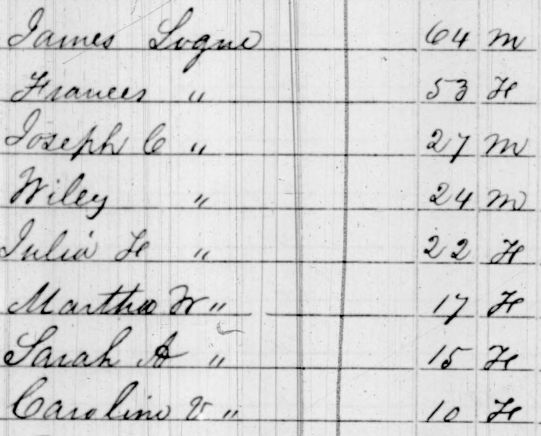 James Logue 64 m
Frances " 53 F
Joseph C " 27 m
Wiley " 24 m
Julia F " 22 F
Martha W " 17 F
Sarah A " 15 F
Caroline V " 10 F